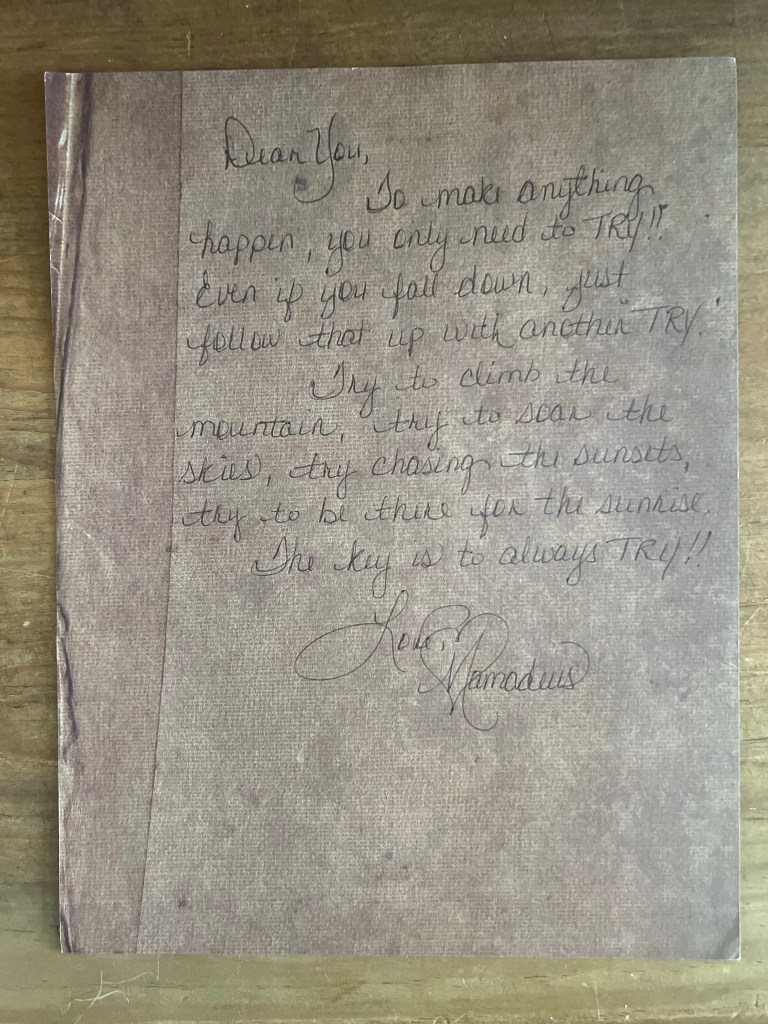 Dear You,
To make anything
happen, you only need to TRY!!
Even if you fall down, just
follow that up with another "TRY."
Try to climb the
mountain, try to soar the
skies, try chasing the sunsets,
try to be there for the sunrise.
The key is to always TRY!!
Love,
Mamadeus